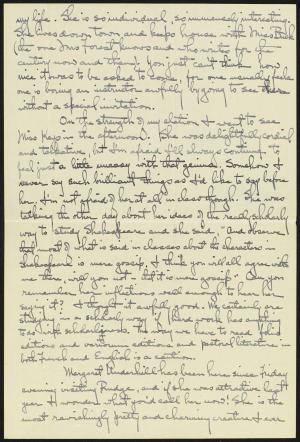 my life. She is so individual, so immensely interesting.
She lives down town and keeps house with Miss
(the one Ims Forest knows and who writes for the
century now and then). You just can't think how
nice it was to be asked to come, for one usually feels
one is boring an instructor awfully by going to see
without a special invitation.
On the strength of my elation I went to see
Miss Keys in the afternoon. She was delightfully cordial
and talkative, but I'm afraid I'll always continue to
feel just a little uneasy with that genius. Somehow I
never say such brilliant things as I'd like to say before
her. I'm not afraid of her at all in class though. She was
talking the other day about her ideas of the really scholarly
way to study Shakespeare and she said, "And observe
that most of what is said in classes about the characters in
Shakespeare is mere gossip. I think you will all agree with
me there, will you not - that it is mere gossip". Can you
remember her inflections well enough to hear her
saying it? I thought it awfully good. We certainly are
studying in a scholarly way if hard work has anything
to do with scholarliness. The way we have to read folio
editions and variorum editions and period literature in
both French and English is a caution.
Margaret Underhill has been here since Friday
evening visiting Pudge, and if she was attractive last
year I wonder what you'd call her now! She is the
most ravishingly pretty and charming creature I ever